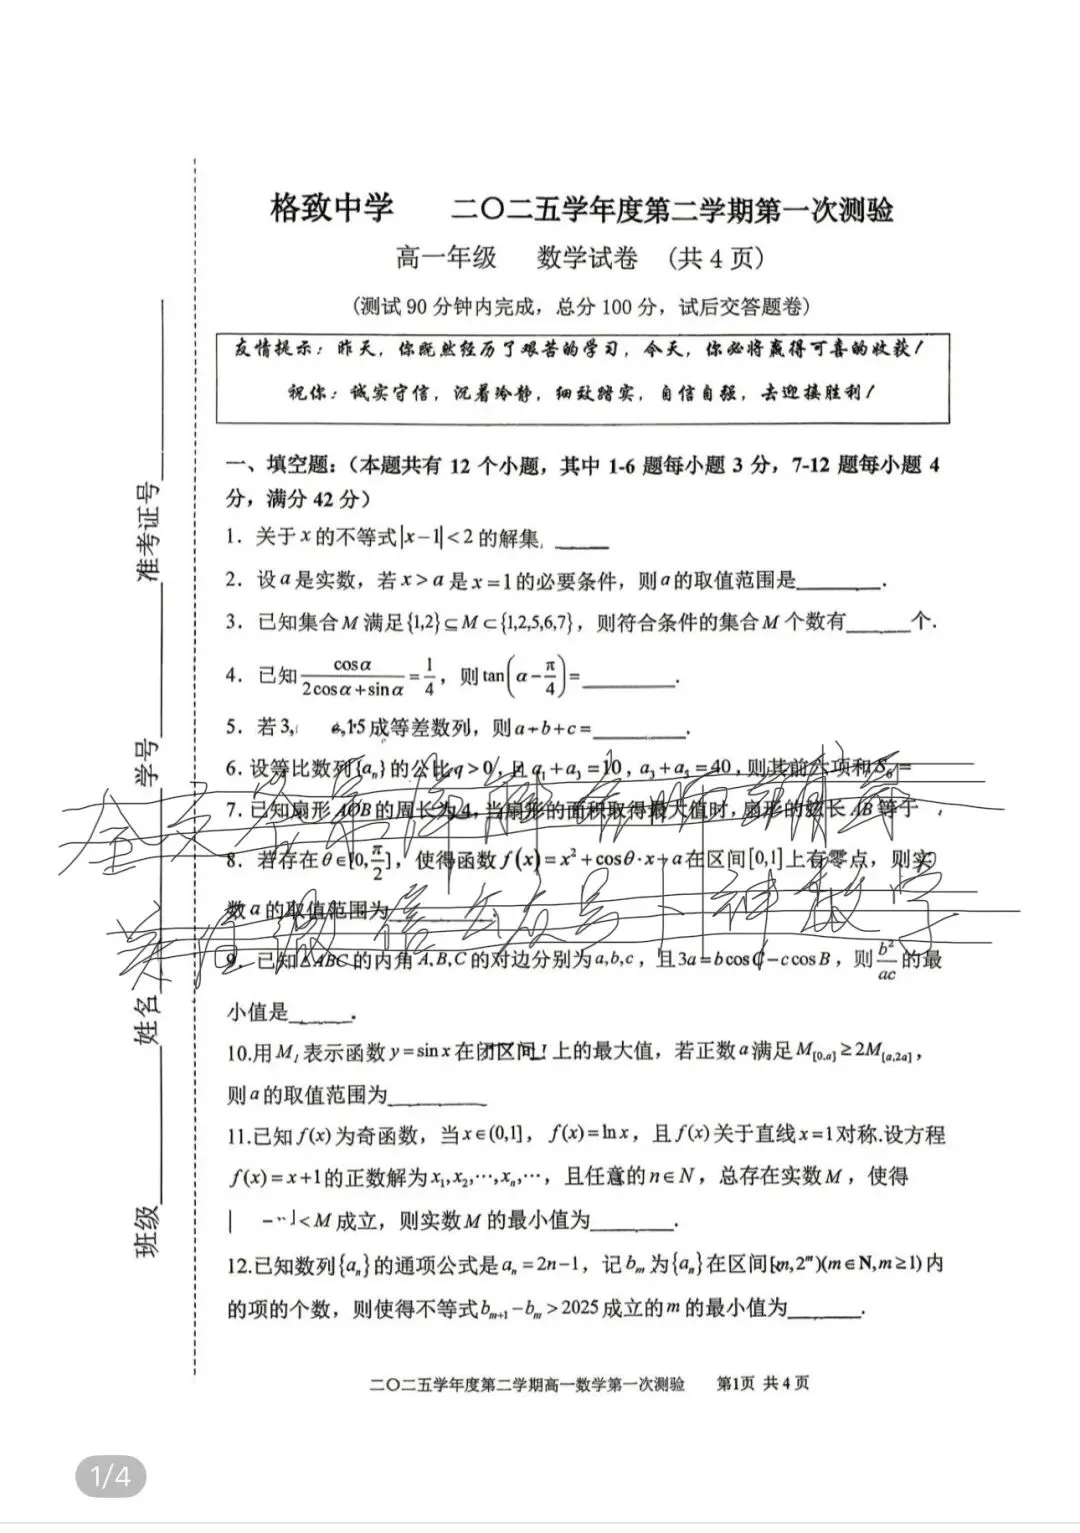 格致中学 二〇二五学年度第二学期第一次测验
高一年级 数学试卷 (共 4 页)
(测试 90 分钟内完成，总分 100 分，试后交答题卷)
友情提示：昨天，你既然经历了艰苦的学习，今天，你必将赢得可喜的收获！
祝你：诚实守信，沉着冷静，细致踏实，自信自强，去迎接胜利！
一、填空题：（本题共有 12 个小题，其中 1-6 题每小题 3 分，7-12 题每小题 4
分，满分 42 分）
1. 关于 x 的不等式|x-1|<2 的解集 ____
2. 设 a 是实数，若 x>a 是 x=1 的必要条件，则 a 的取值范围是______.
3. 已知集合 M 满足{1,2}⊆M⊂{1,2,5,6,7}，则符合条件的集合 M 个数有____个.
4. 已知 cosα/(2cosα+sinα)=1/4，则 tan(α-π/4)=______.
5. 若 3, ,15 成等差数列，则 a+b+c=______.
6. 设等比数列{aₙ}的公比 q>0，且 a₁+a₃=10，a₃+a₅=40，则其前六项和 S₆=
7. 已知扇形 AOB 的周长为 4，当扇形的面积取得最大值时，扇形的弦长 AB 等于 .
8. 若存在 θ∈[0,π/2]，使得函数 f(x)=x²+cosθ·x+a 在区间[0,1]上有零点，则实
数 a 的取值范围为______.
9. 已知△ABC 的内角 A,B,C 的对边分别为 a,b,c，且 3a=bcosC-ccosB，则 b²/ac 的最
小值是____.
10.用 M_I 表示函数 y=sin x 在闭区间 I 上的最大值，若正数 a 满足 M_[0,a]≥2M_[a,2a]，
则 a 的取值范围为______
11.已知 f(x) 为奇函数，当 x∈(0,1]，f(x)=ln x，且 f(x) 关于直线 x=1 对称.设方程
f(x)=x+1 的正数解为 x₁,x₂,…,xₙ,…，且任意的 n∈N，总存在实数 M，使得
| - |<M 成立，则实数 M 的最小值为______.
12.已知数列{aₙ}的通项公式是 aₙ=2n-1，记 bₘ 为{aₙ}在区间[m,2ᵐ)(m∈N,m≥1) 内
的项的个数，则使得不等式 bₘ₊₁-bₘ>2025 成立的 m 的最小值为______.
二〇二五学年度第二学期高一数学第一次测验 第1页 共 4 页
准考证号
学号
姓名
班级
1/4